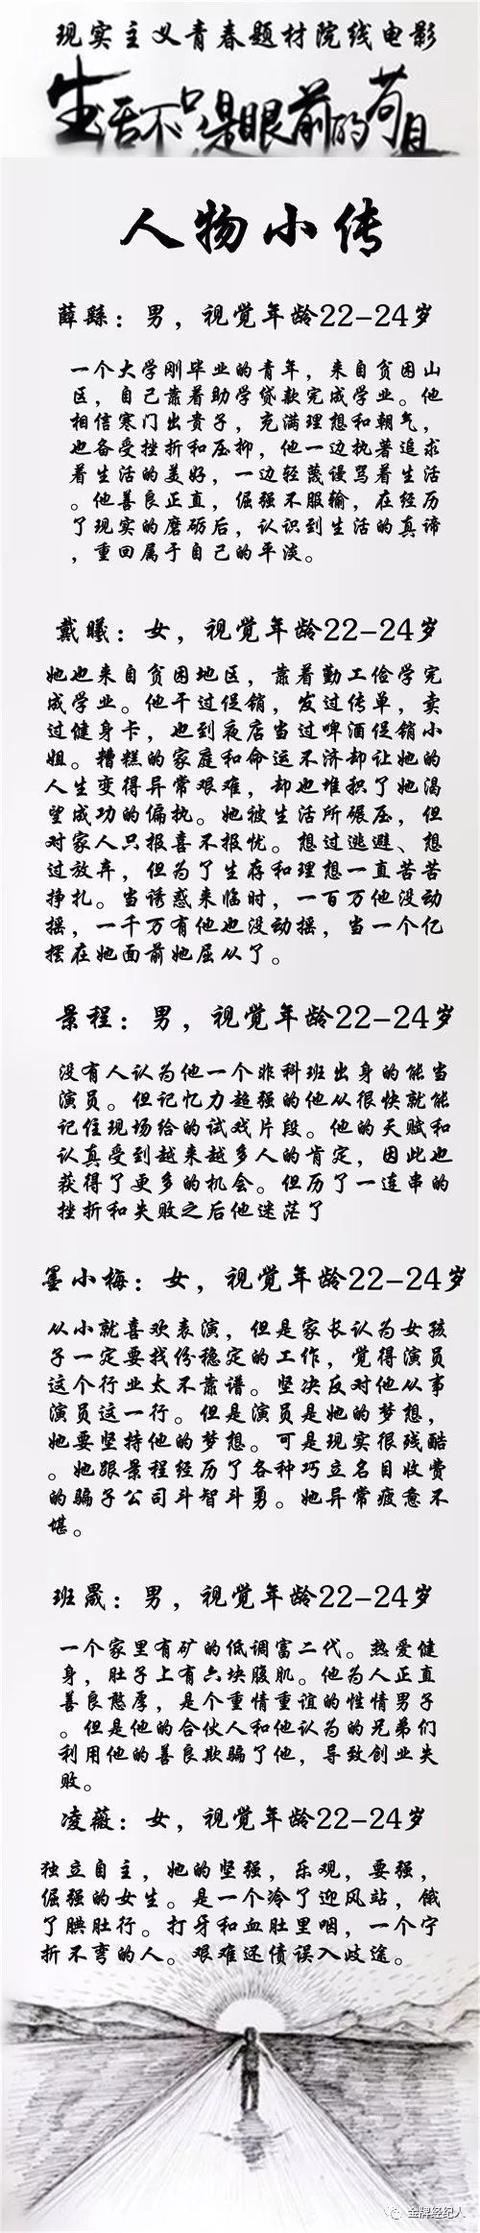 现实主义青春题材院线电影
生活不只是眼前的苟且
人物小传
薛繇：男，视觉年龄22-24岁
一个大学刚毕业的青年，来自贫困山
区，自己靠着助学贷款完成学业。他
相信寒门出贵子，充满理想和朝气，
也备受挫折和压抑，他一边执著追求
着生活的美好，一边轻蔑谩骂着生活
。他善良正直，倔强不服输，在经历
了现实的磨砺后，认识到生活的真谛
，重回属于自己的平淡。
戴曦：女，视觉年龄22-24岁
她也来自贫困地区，靠着勤工俭学完
成学业。他干过促销，发过传单，卖
过健身卡，也到夜店当过啤酒促销小
姐。糟糕的家庭和命运不济却让她的
人生变得异常艰难，却也堆积了她渴
望成功的偏执。她被生活所碾压，但
对家人只报喜不报忧。想过逃避、想
过放弃，但为了生存和理想一直苦苦
挣扎。当诱惑来临时，一百万他没动
摇，一千万有他也没动摇，当一个亿
摆在她面前她屈从了。
景程：男，视觉年龄22-24岁
没有人认为他一个非科班出身的能当
演员。但记忆力超强的他从很快就能
记住现场给的试戏片段。他的天赋和
认真受到越来越多人的肯定，因此也
获得了更多的机会。但历了一连串的
挫折和失败之后他迷茫了
墨小梅：女，视觉年龄22-24岁
从小就喜欢表演，但是家长认为女孩
子一定要找份稳定的工作，觉得演员
这个行业太不靠谱。坚决反对他从事
演员这一行。但是演员是她的梦想，
她要坚持他的梦想。可是现实很残酷
。她跟景程经历了各种巧立名目收费
的骗子公司斗智斗勇。她异常疲惫不
堪。
班晟：男，视觉年龄22-24岁
一个家里有矿的低调富二代。热爱健
身，肚子上有六块腹肌。他为人正直
善良憨厚，是个重情重谊的性情男子
。但是他的合伙人和他认为的兄弟们
利用他的善良欺骗了他，导致创业失
败。
凌薇：女，视觉年龄22-24岁
独立自主，她的坚强，乐观，要强，
倔强的女生。是一个冷了迎风站，饿
了腆肚行。打牙和血肚里咽，一个宁
折不弯的人。艰难还债误入歧途。
金牌经纪人